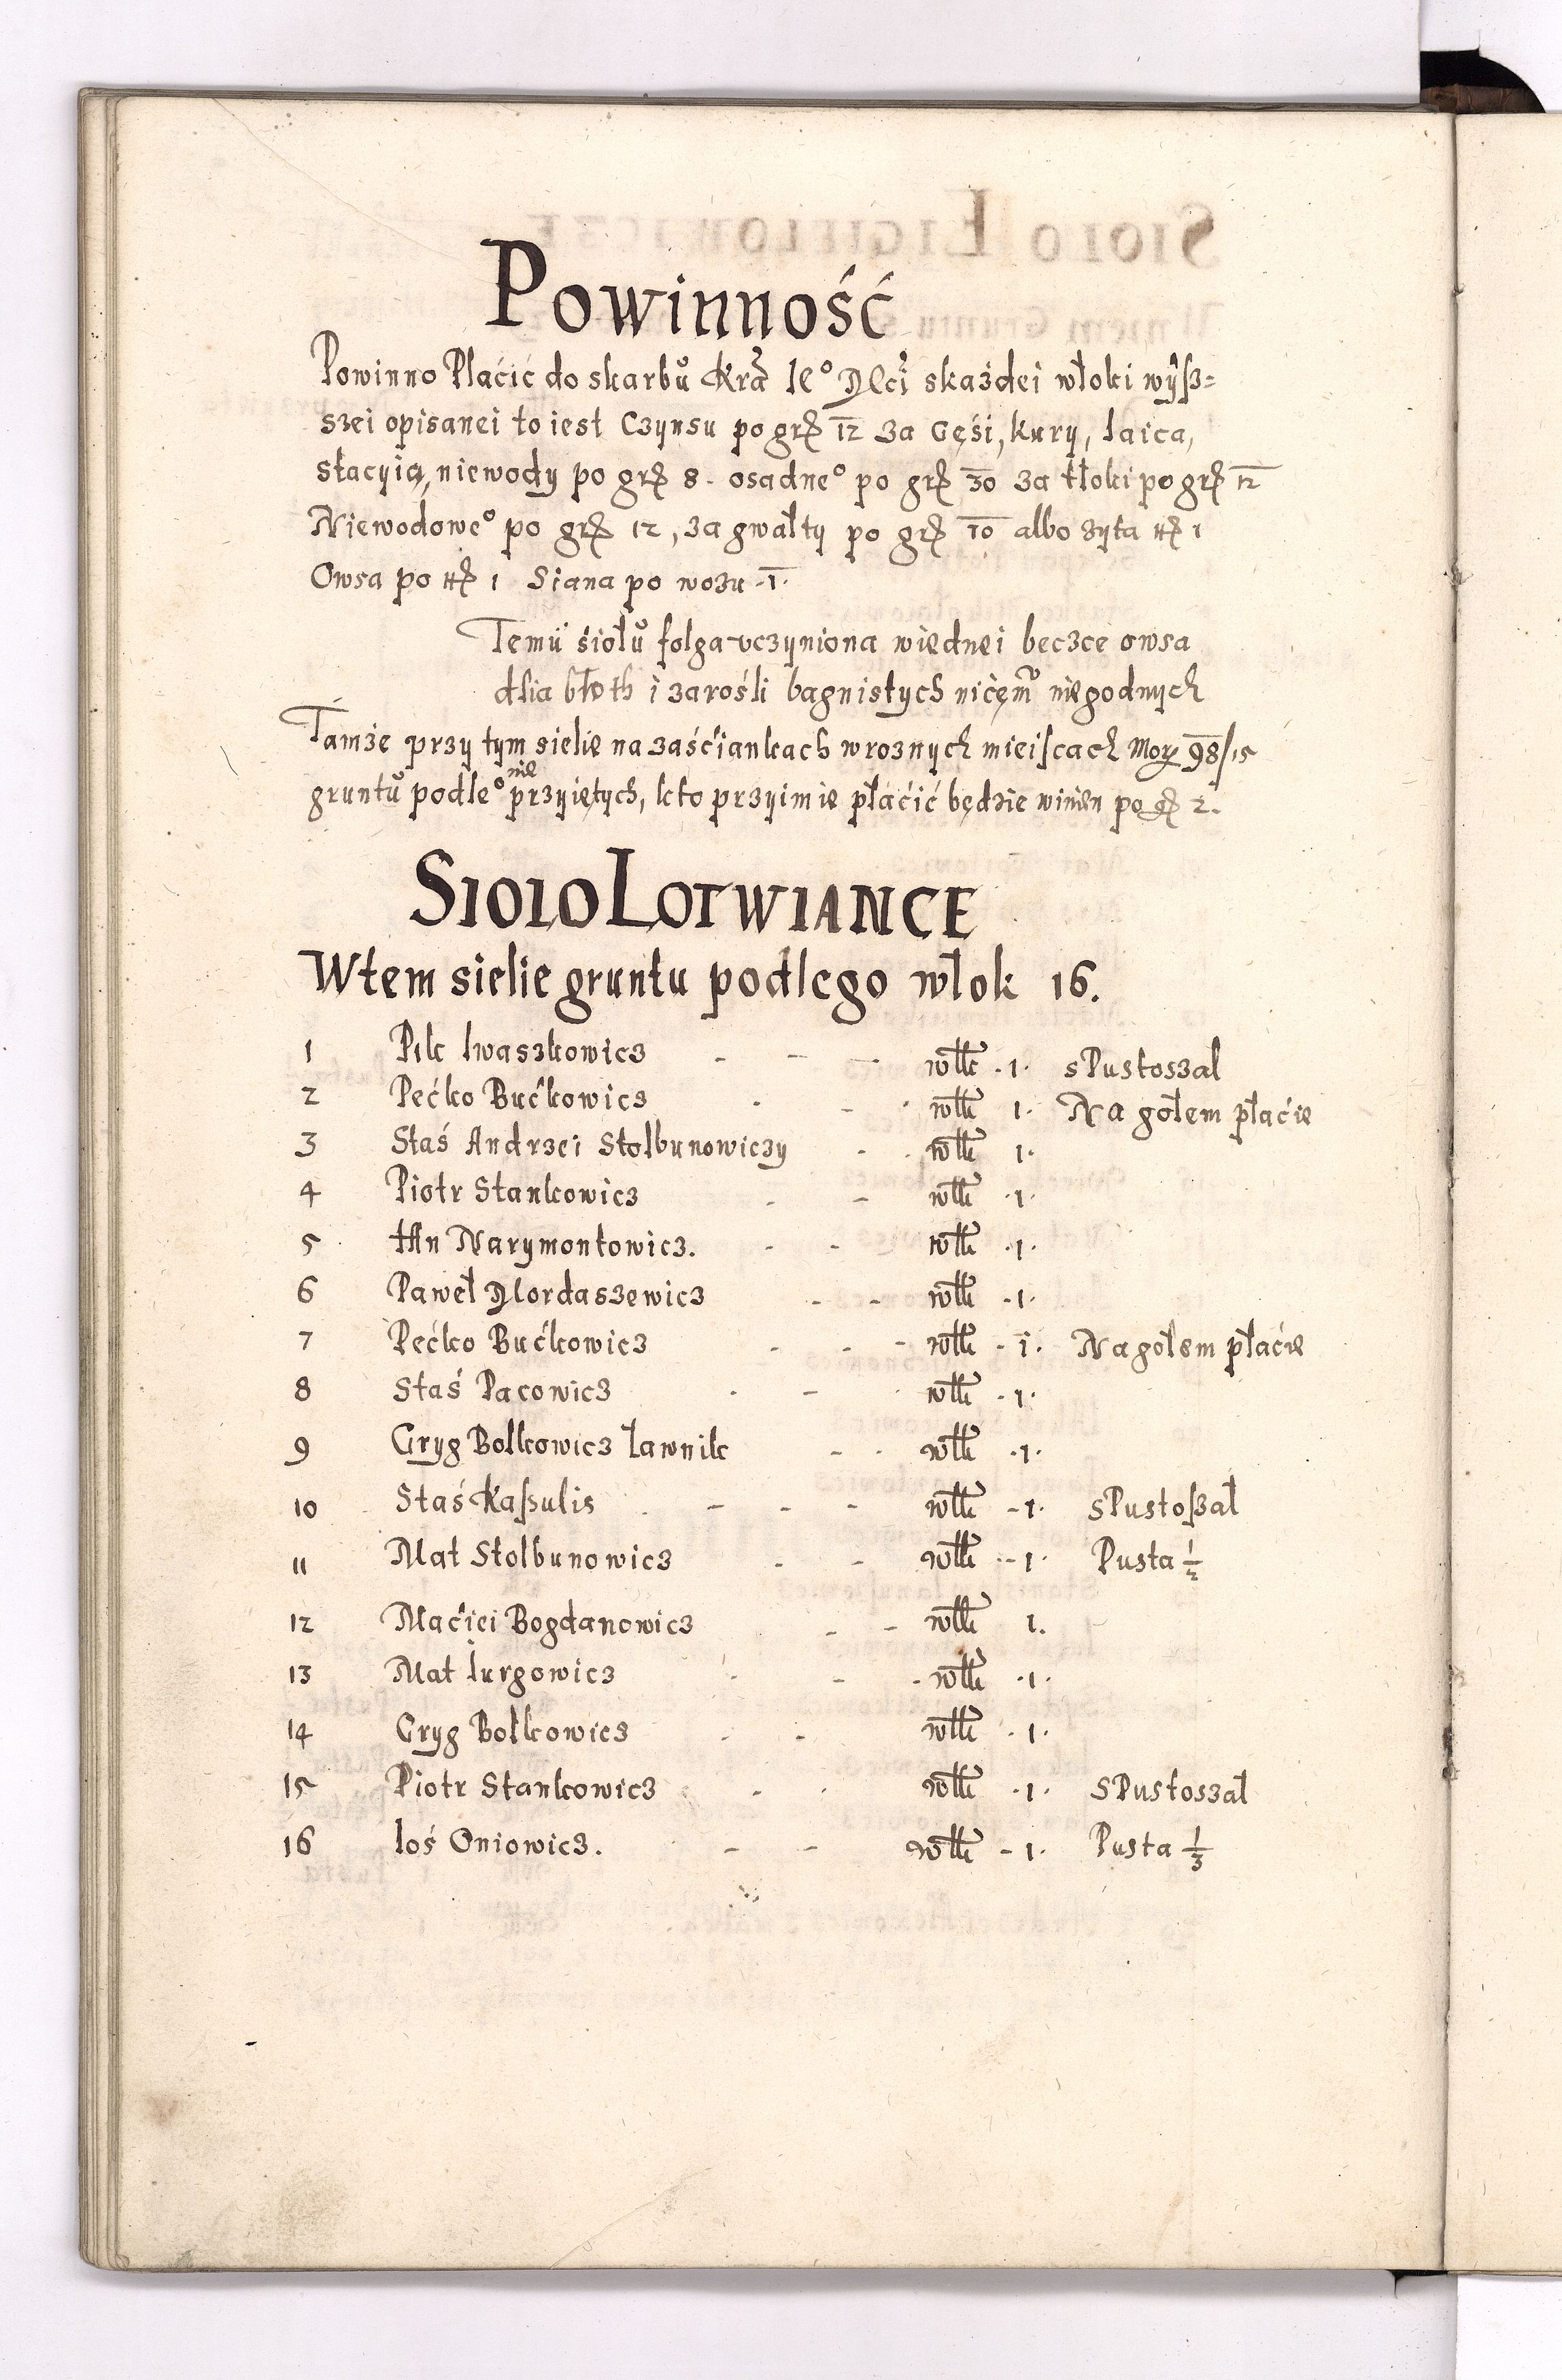 Powinność
Powinno Płaćić do skarbů Kra Ie° Mći skażdei włoki wyß=
szei opisanei to iest Czynsu po gr 12 za Gęśi, kury, Iaica,
stacyią, niewody po gr 8. osadne° po gr 30 za tłoki po gr 12
Niewodowe° po gr 12, za gwałty po gr 10 albo żyta 1
Owsa po 1 Siana po wozu 1.
Temu siołů folga vczyniona wiednei beczce owsa
dlia błoth i zarośli bagnistych niczemů niegodnych
Tamże przy tym sielie na zaśćiankach wroznych mieiscach Mor 98/15
gruntů podłe° nie przyiętych, kto przyimie płaćić będzie winien po gr 2.
SIOłO LOTWIANCE
Wtem sielie gruntu podłego włok 16.
1 Pik Iwaszkowicz - - - włk .1. sPustoszał
2 Pećko Bućkowicz - - - włk 1. Na gołem płaćie
3 Staś Andrzei Stolbunowiczy - - włk 1.
4 Piotr Stankowicz - - włk .1.
5 Narymontowicz. - - włk .1.
6 Paweł Mordaszewicz - - włk .1.
7 Pećko Bućkowicz - - - włk - 1. Na gołem płaćie
8 Staś Pacowicz - - - włk .1.
9 Gryg Bolkowicz Ławnik - - włk .1.
10 Staś Kaßulis - - - włk - 1. sPustoßał
11 Mat Stolbunowicz - - włk - 1. Pusta 1/2
12 Maćiei Bogdanowicz - - włk 1.
13 Mat Iurgowicz - - - włk .1.
14 Gryg Bolkowicz - - włk .1.
15 Piotr Stankowicz - - włk .1. SPustoszał
16 Ioś Oniowicz. - - włk - 1. Pusta 1/3